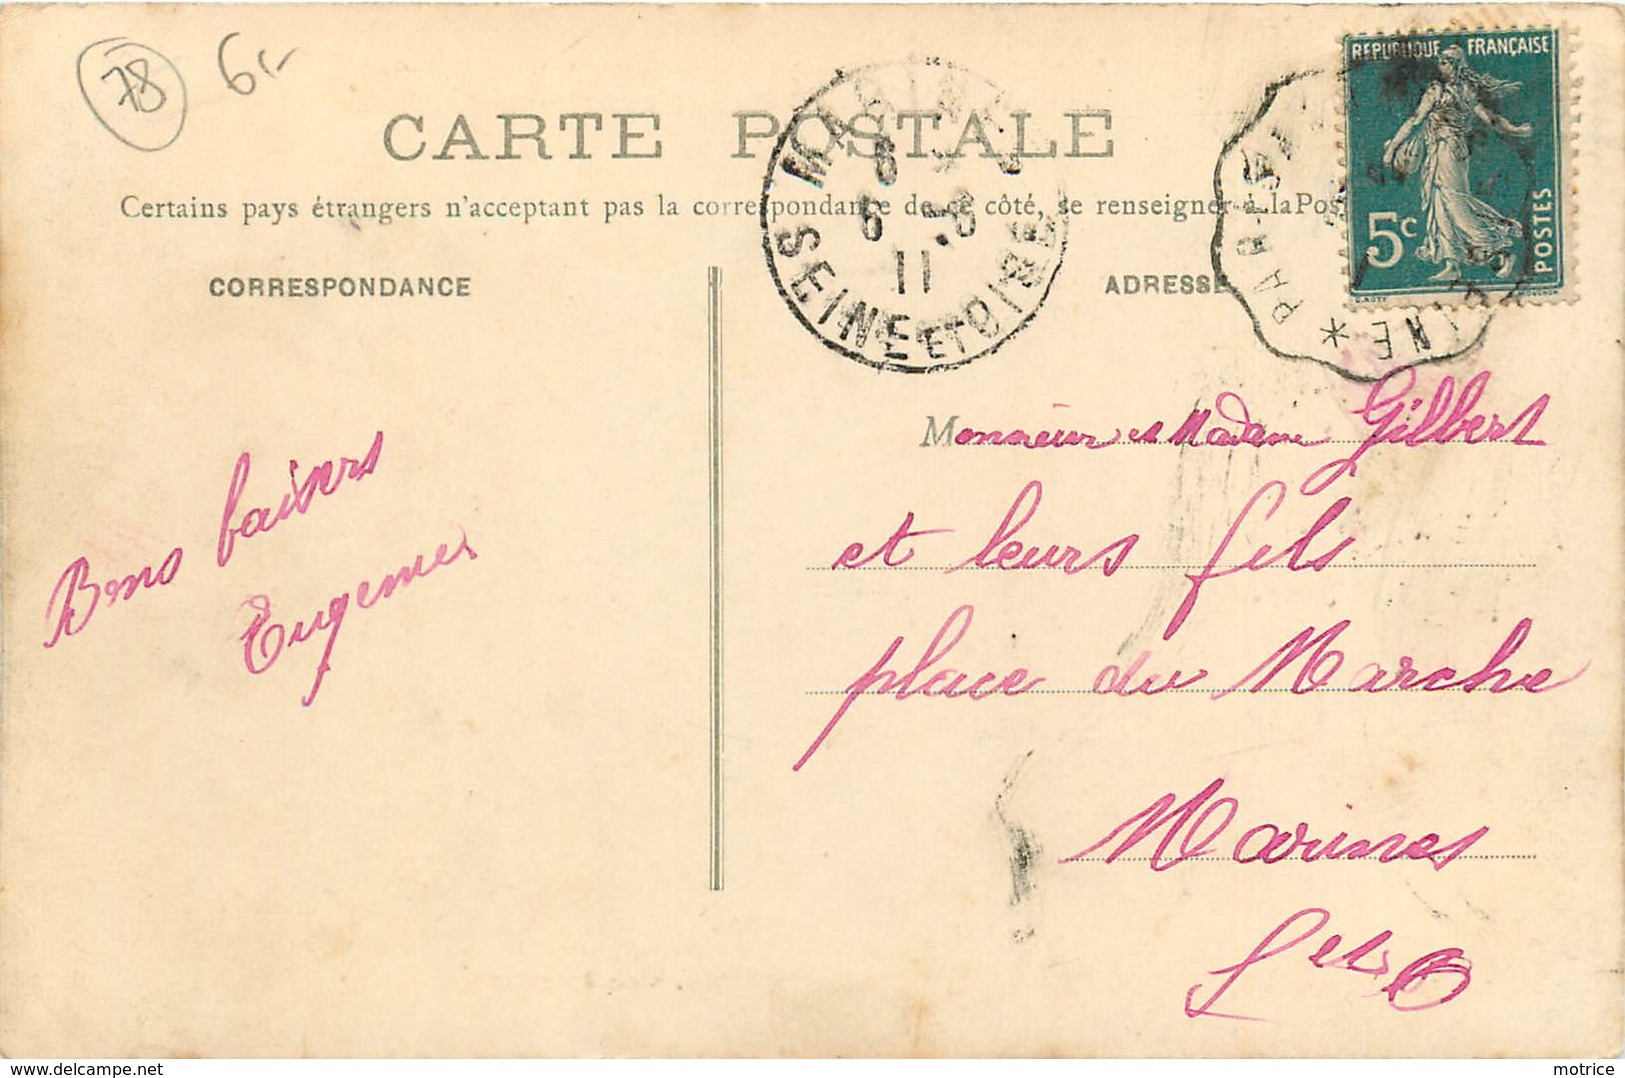 78
6,-
CARTE POSTALE
Certains pays étrangers n'acceptant pas la correspondance de ce côté, se renseigner à la Pos
CORRESPONDANCE
ADRESSE
MARINES
6
6 -8
11
SEINE ET OISE
REPUBLIQUE FRANÇAISE
5c
POSTES
PARIS
INE *
Monsieur et Madame Gilbert
et leurs fils
place du Marche
Marines
S et O
Bons baisers
Eugenie
matrice